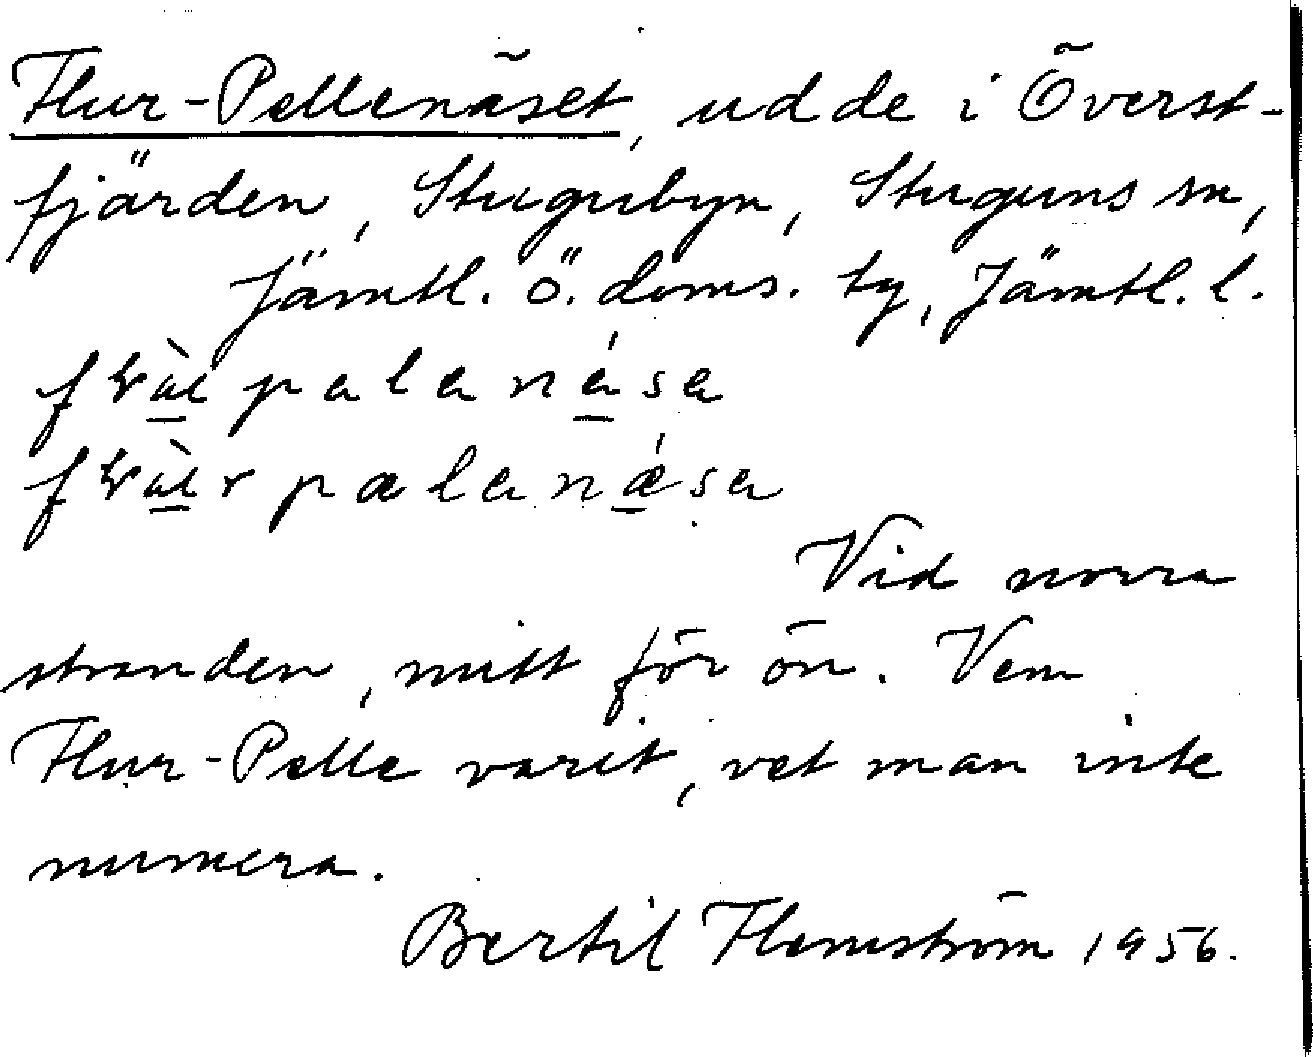 Flur-Pellenäset, udde i Överst-
fjärden, Stugubyn, Stuguns sn,
Jämtl. ö. doms. tg, Jämtl. l.
Vid norra
stranden, mitt för ön. Vem
Flur-Pelle varit, vet man inte
numera.
Bertil Flemström 1956.